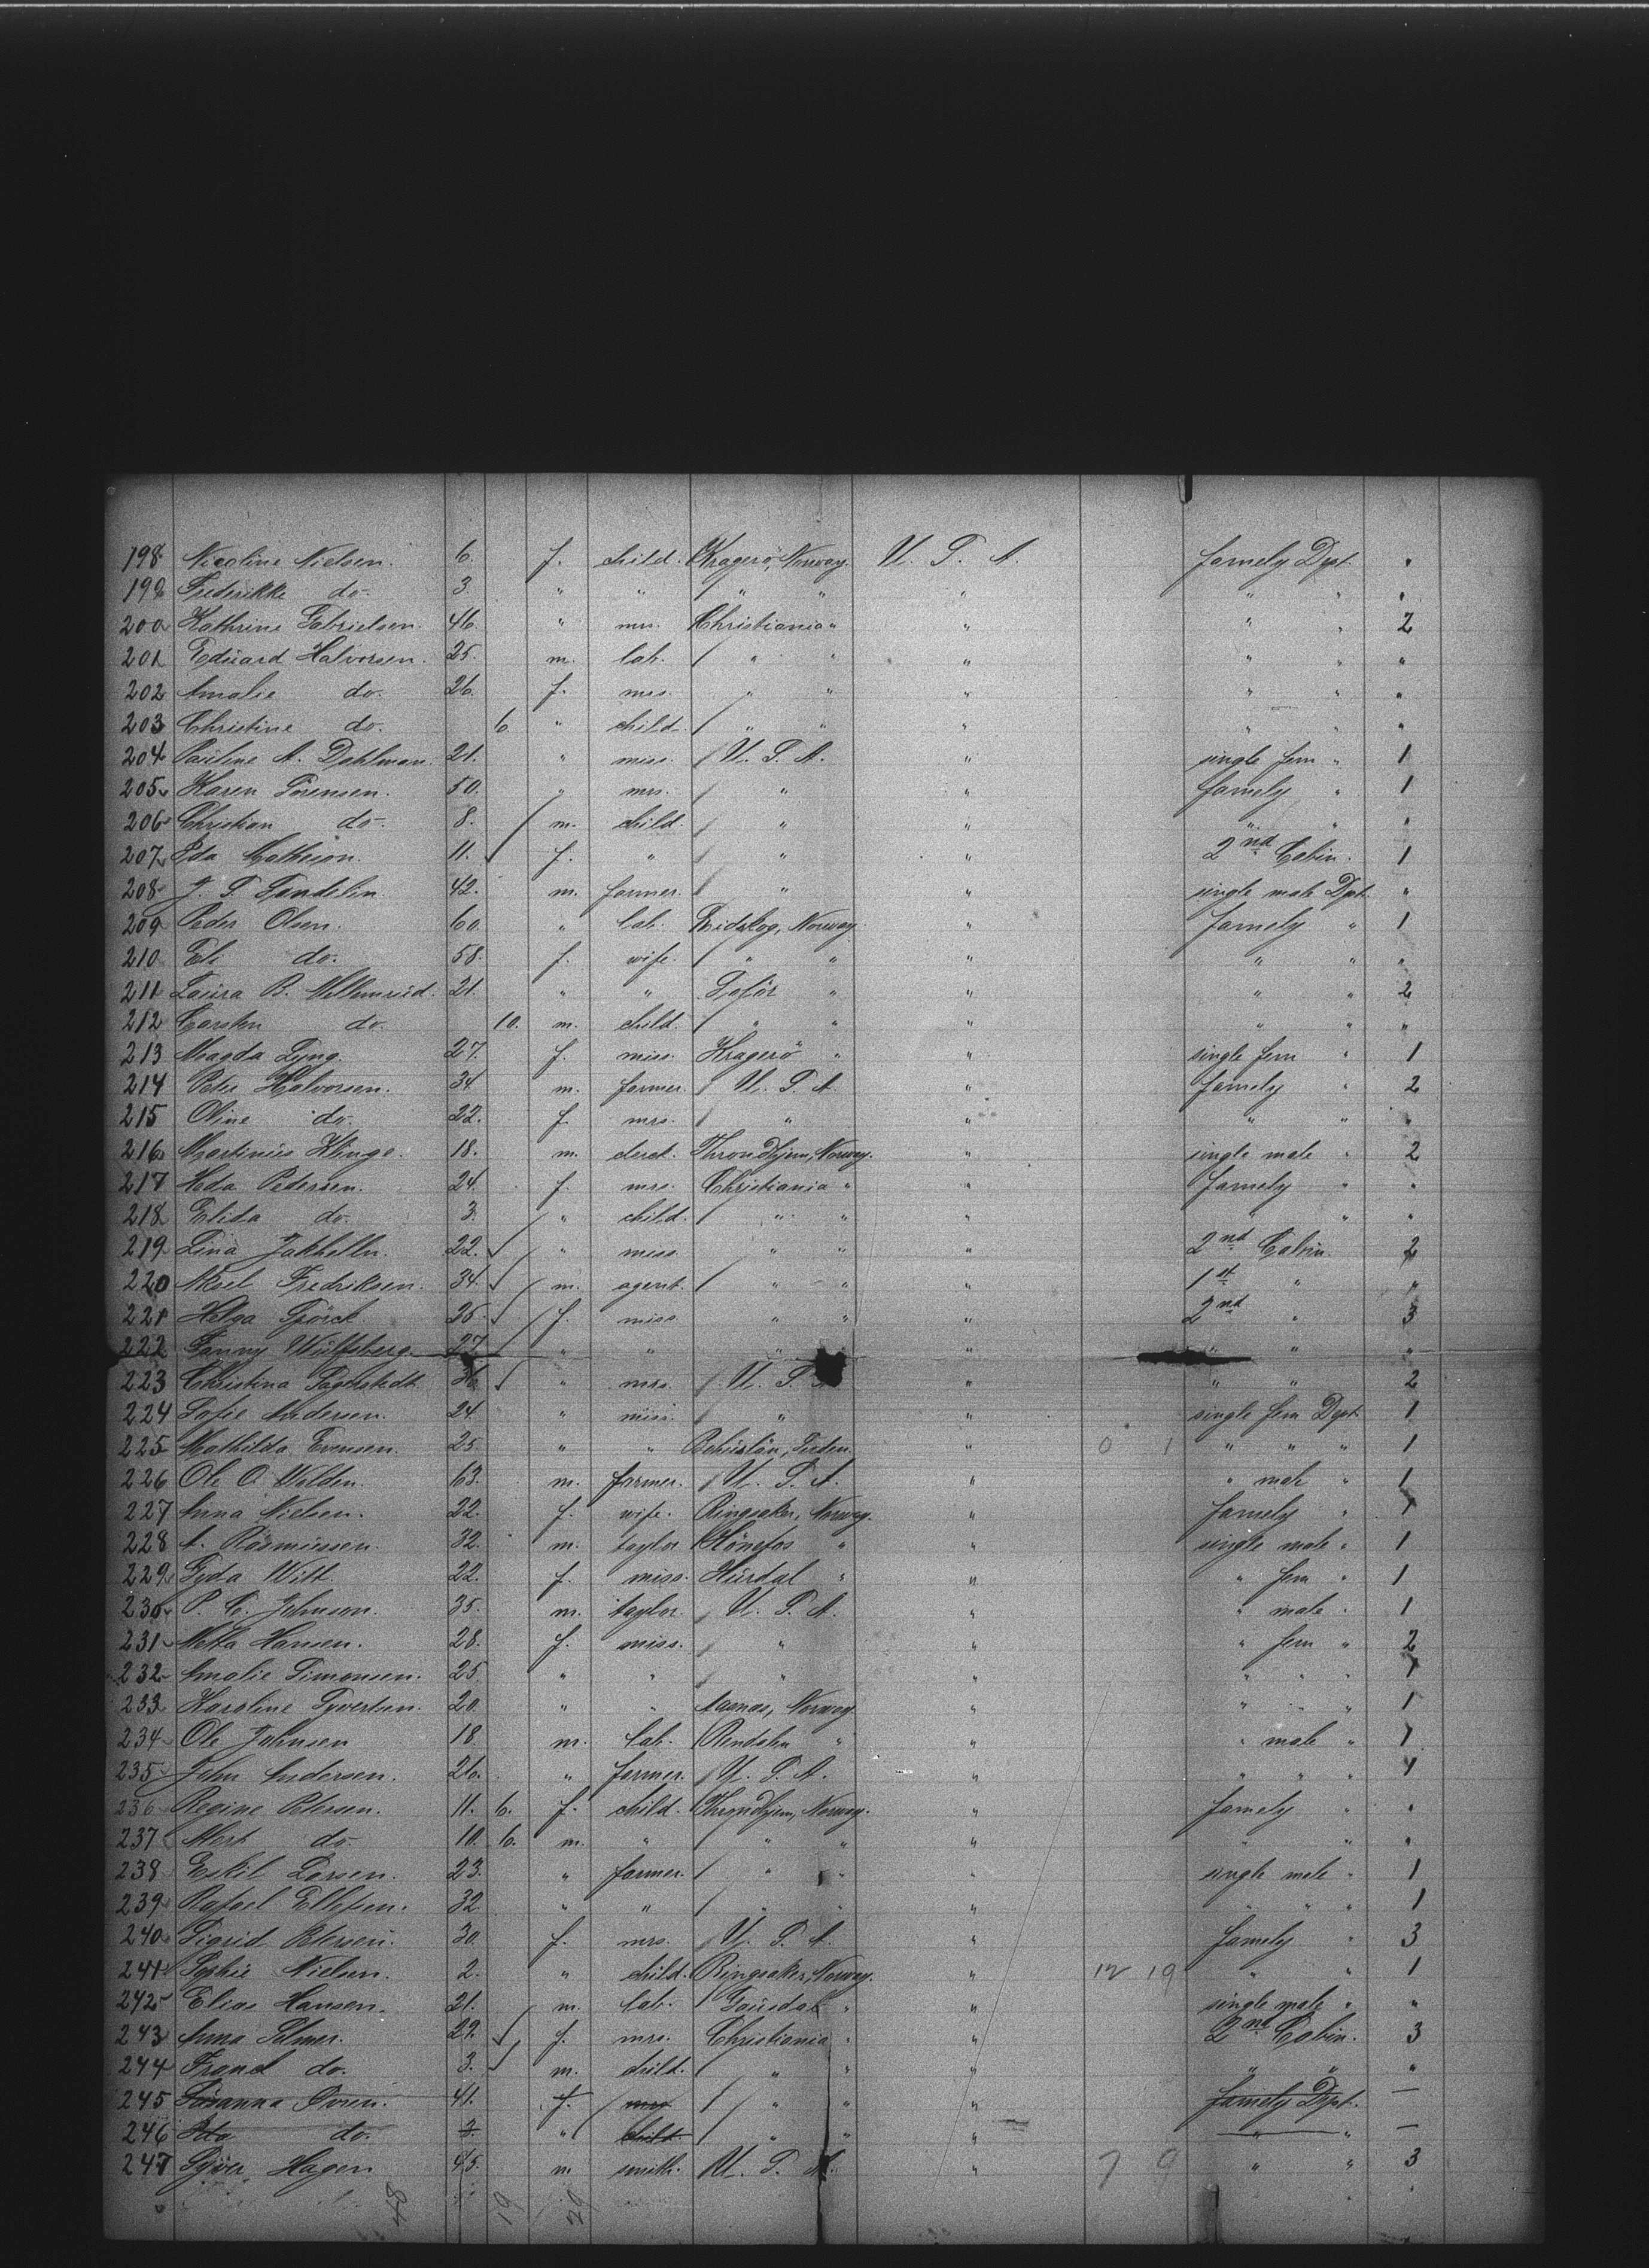 198 Nicoline Nielsen. 6. f. child. Kragerö, Norway. U. S. A. famely Dpt. "
199 Frederikke do. 3 " " " " " " " "
200 Kathrine Gabrielsen. 46. " mrs. Christiania " " " " 2
201 Eduard Halvorsen. 25. m. lab. " " " " " "
202 Amalie do. 26. f. mrs. " " " " " "
203 Christine do. 6 " child. " " " " " "
204 Pauline A. Dahlman. 21. " miss. U. S. A. " single fem " 1
205 Karen Sörensen. 50. " mrs. " " famely " 1
206 Christian do. 8. m. child. " " " " "
207 Ida Mathison. 11. f. " " " 2nd Cabin. 1
208 J. S. Sandelin. 42. m. farmer. " " single male Dpt. "
209 Peder Olsen. 60. " lab. Eidskog, Norway. " famely " 1
210 Eli do. 58. f. wife. " " " " " "
211 Laura B. 21. " " " " " " 2
212 Carsten do. 10. m. child. " " " " " "
213 Magda Lyng. 27. f. miss. Kragerö " " single fem " 1
214 Peter Halvorsen. 34 m. farmer. U. S. A. " famely " 2
215 Oline do. 22. f. mrs. " " " " "
216 Martinius Klinge. 18. m. clerck. Throndhjem, Norway. " single male " 2
217 Hda Pedersen. 24. f. mrs. Christiania " " famely " "
218 Elida do. 3. " child. " " " " " "
219 Lina Jakhelln. 22. " miss. " " " 2nd Cabin. 2
220 Aksel Fredriksen. 34. m. agent. " " " 1st " "
221 Helga Sporck. 26. f. miss " " " 2nd " 3
222 Fanny Wulfsberg. 27 " " " " " " " "
223 Christina Sagerstedt. 36. " mrs. U. S. " " " 2
224 Sofie Andersen. 24. " miss. " " single fem Dpt. 1
225 Mathilda Evensen. 25. " " Bohuslän, Sveden. " 0 1 " " " 1
226 Ole O. Wolden. 63. m. farmer. U. S. A. " " male " 1
227 Anna Nielsen. 22. f. wife. Ringsaker, Norway. " famely " 1
228 A. Rasmussen. 32. m. taylor Hönefos " " single male " 1
229 Gyda Witt 22. f. miss. Hurdal " " " fem " 1
230 P. C. Johnson. 35. m. taylor. U. S. A. " " male " 1
231 Metta Hansen. 28. f. miss. " " " fem " 2
232 Amalie Simonsen. 25. " " " " " " " 1
233 Karoline Syvertsen. 20. " " Aasnas, Norway. " " " " 1
234 Ole Johnsen 18. m. lab. Rendalen " " " male " 1
235 John Andersen. 26. " farmer. U. S. A. " " " " 1
236 Regine Petersen. 11. 6. f. child. Throndhjem, Norway. " famely " "
237 do. 10. 6. m. " " " " " " "
238 Eskil Larsen. 23. " farmer. " " " single male " 1
239 Rafael Ellefsen. 32 " " " " " " " " 1
240 Sigrid Petersen. 30. f. mrs. U. S. A. " famely " 3
241 Sophie Nielsen. 2. " child. Ringsaker, Norway. " 12 19 " " 1
242 Elias Hansen. 21. m. lab. Gausdal " " single male " "
243 Anna Selmer. 22. f. mrs. Christiania " " 2nd Cabin. 3
244 do. 3. m. child. " " " " " "
245 Susanna Ovren. 41. f. mrs " " " famely Dpt. —
246 Ida do. 2. " child. " " " " " —
247 Hagen 45. m. smith. U. S. A. " 7 9 " " 3
84 19 29